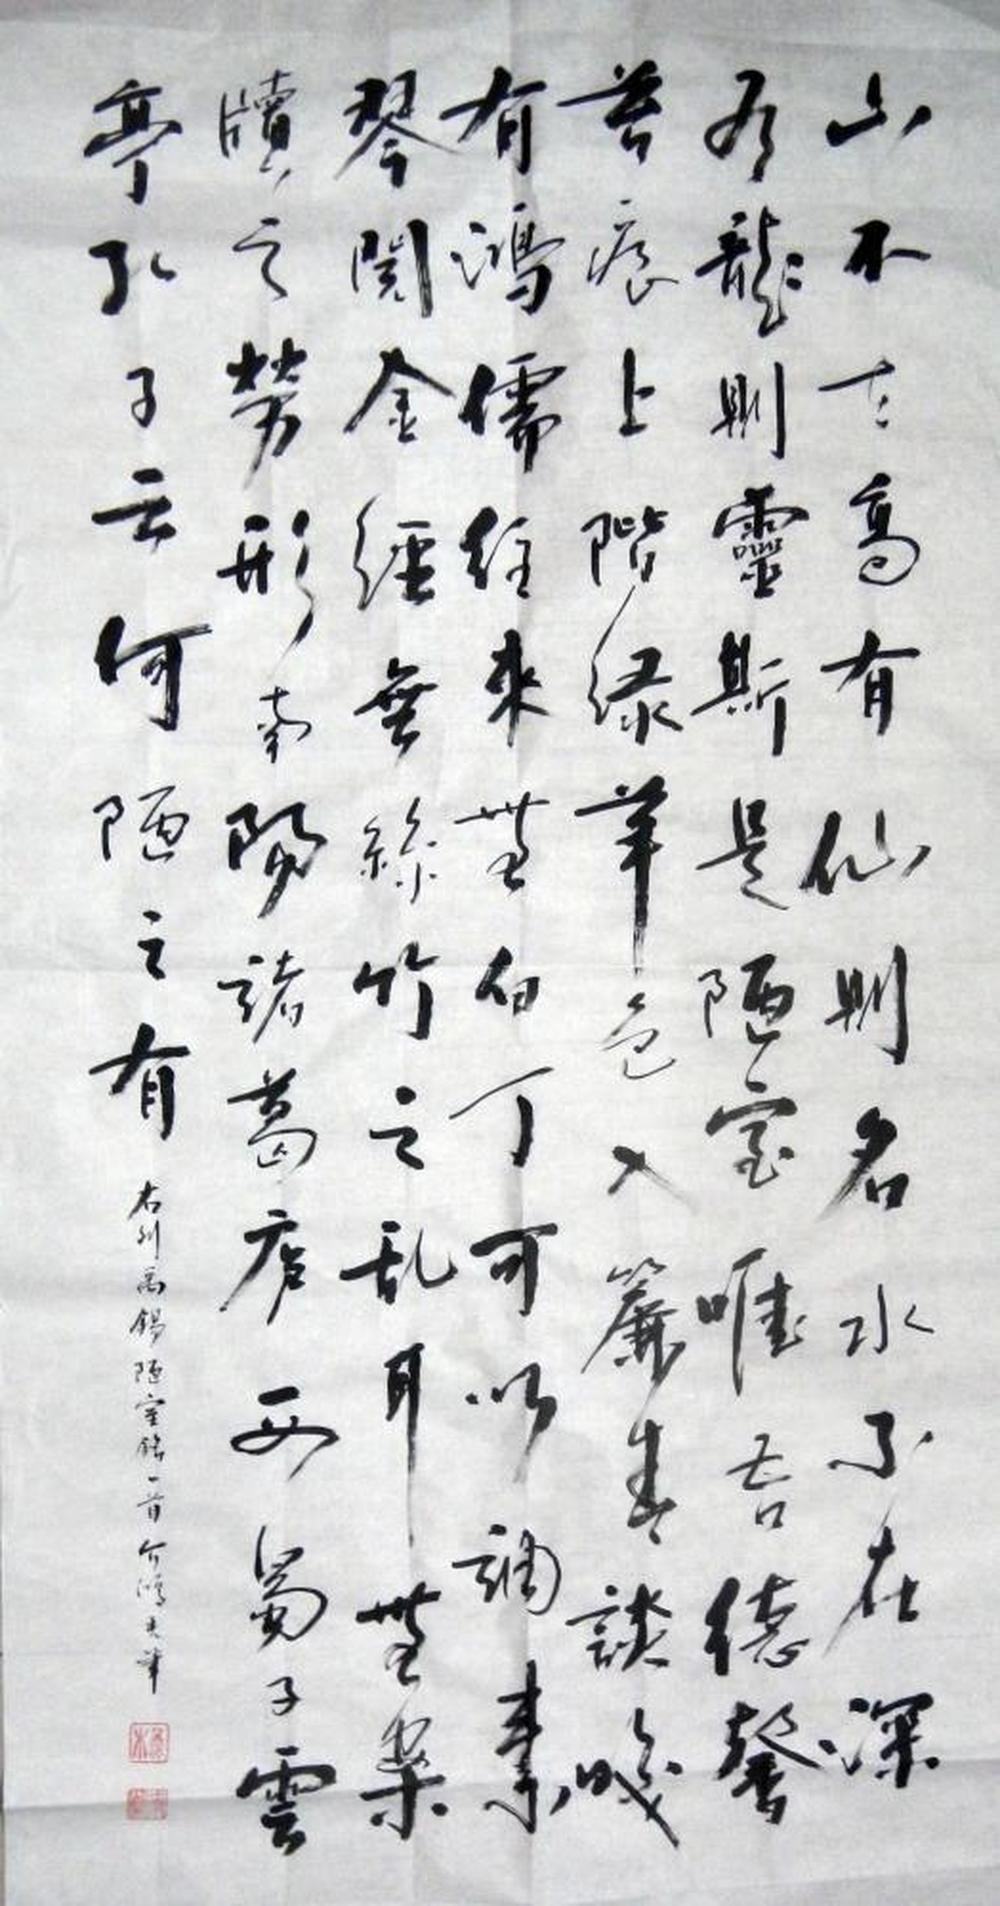 山不在高有仙則名水不在深
有龍則靈斯是陋室唯吾德馨
苔痕上階緑草色入簾青談咲
有鴻儒往來無白丁可以調素
琴閲金經無絲竹之乱耳無案
牘之勞形南陽諸葛庐西蜀子雲
亭孔子云何陋之有
右刘禹錫陋室銘一首